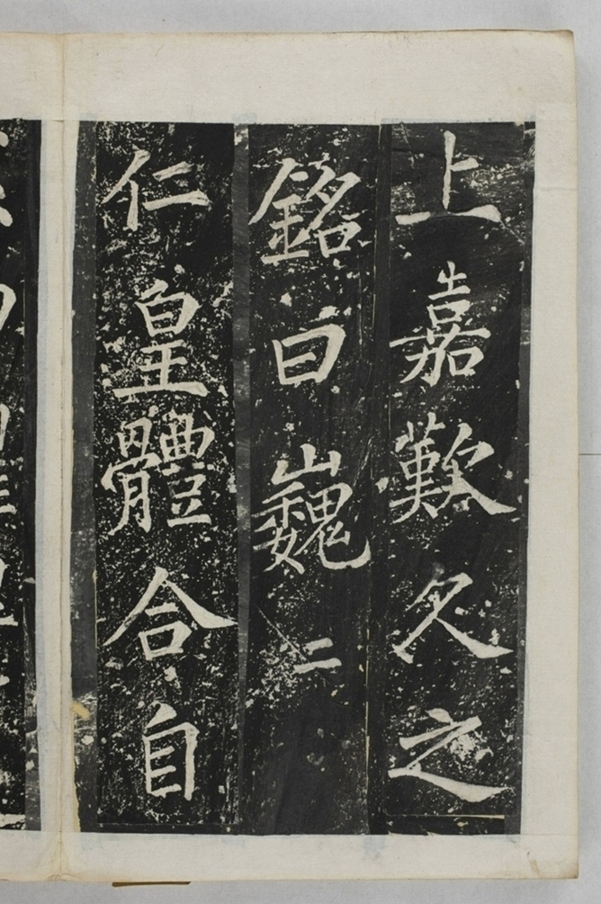 上嘉歎久之
銘曰巍二
仁皇體合自